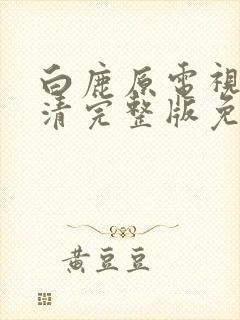 白鹿原電視
清完整版免
黃豆豆